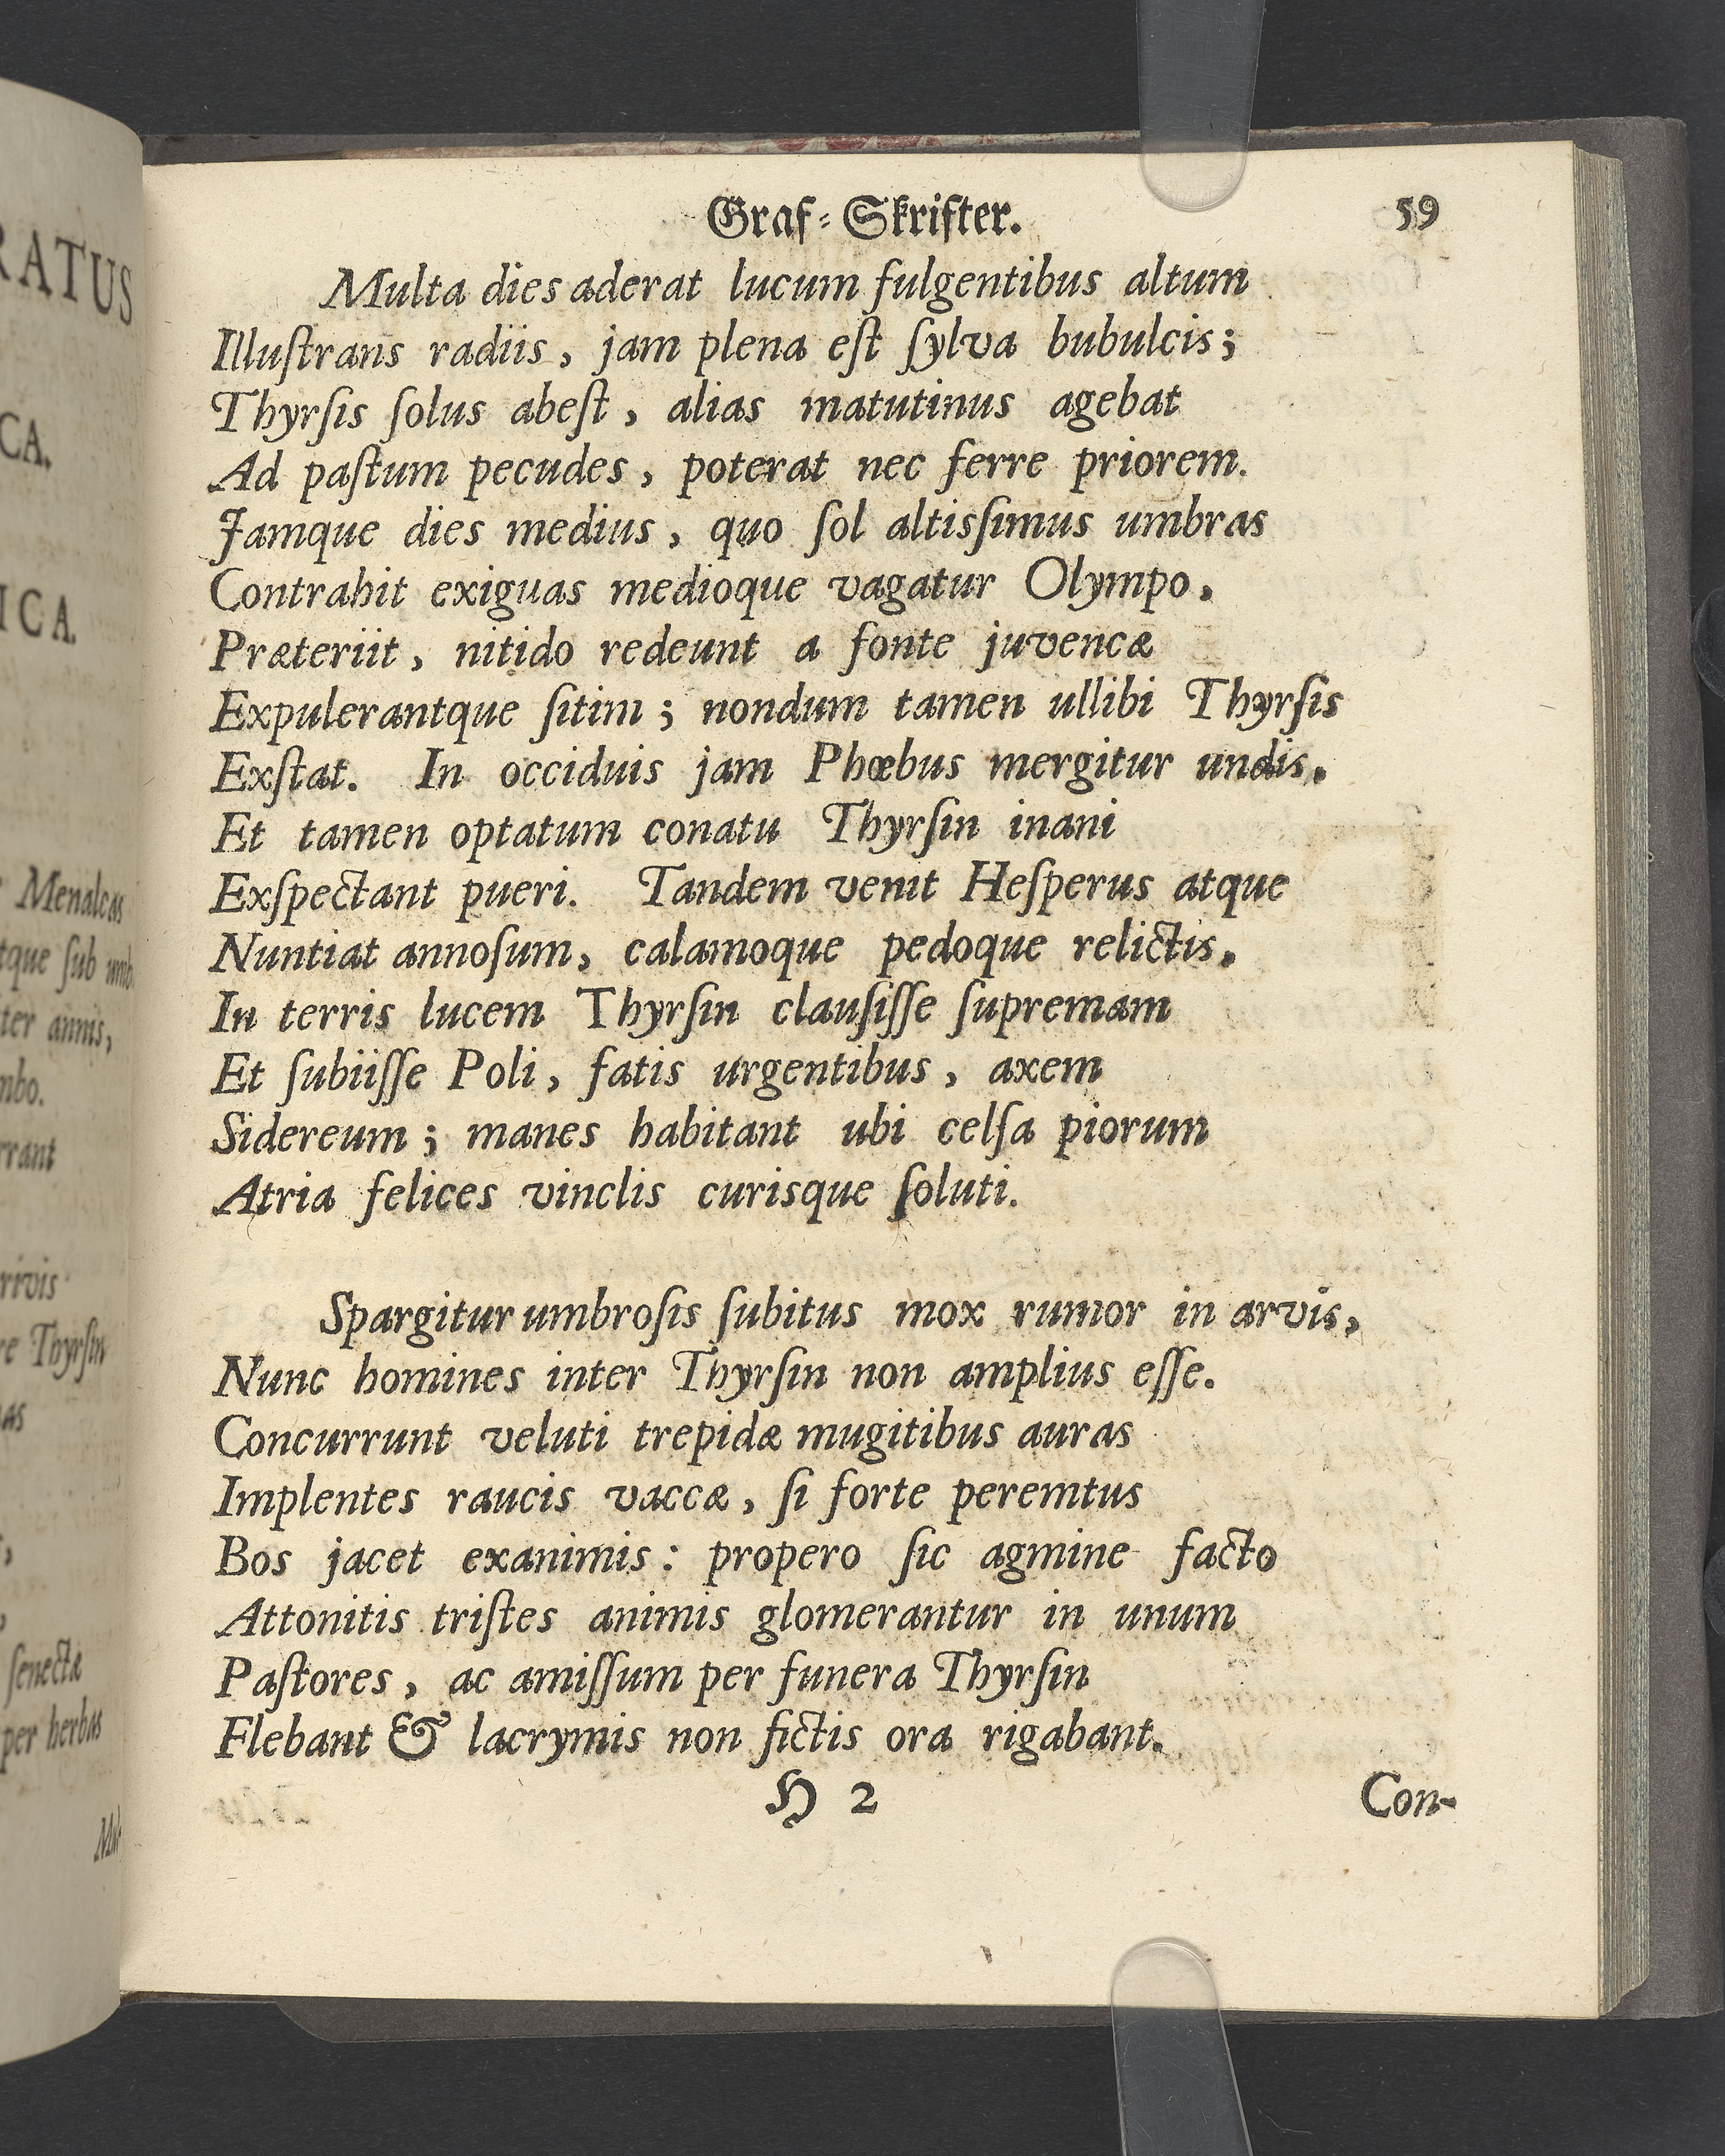 RATUS
CA.
ICA.
Menalcas
tque ſub umb.
ter annis,
mbo.
rrant
rivis
re Thyrſin
as
ſenectæ
per herbas
Mul-
Graf-Skrifter. 59
Multa dies aderat lucum fulgentibus altum
Illuſtrans radiis, jam plena eſt ſylva bubulcis;
Thyrſis ſolus abeſt, alias matutinus agebat
Ad paſtum pecudes, poterat nec ferre priorem.
Jamque dies medius, quo ſol altisſimus umbras
Contrahit exiguas medioque vagatur Olympo,
Præteriit, nitido redeunt a fonte juvencæ
Expulerantque ſitim; nondum tamen ullibi Thyrſis
Exſtat. In occiduis jam Phœbus mergitur undis,
Et tamen optatum conatu Thyrſin inani
Exſpectant pueri. Tandem venit Heſperus atque
Nuntiat annoſum, calamoque pedoque relictis,
In terris lucem Thyrſin clauſiſſe ſupremam
Et ſubiiſſe Poli, fatis urgentibus, axem
Sidereum; manes habitant ubi celſa piorum
Atria felices vinclis curisque ſoluti.
Spargitur umbroſis ſubitus mox rumor in arvis,
Nunc homines inter Thyrſin non amplius eſſe.
Concurrunt veluti trepidæ mugitibus auras
Implentes raucis vaccæ, ſi forte peremtus
Bos jacet exanimis: propero ſic agmine facto
Attonitis triſtes animis glomerantur in unum
Paſtores, ac amiſſum per funera Thyrſin
Flebant & lacrymis non fictis ora rigabant.
H 2 Con-